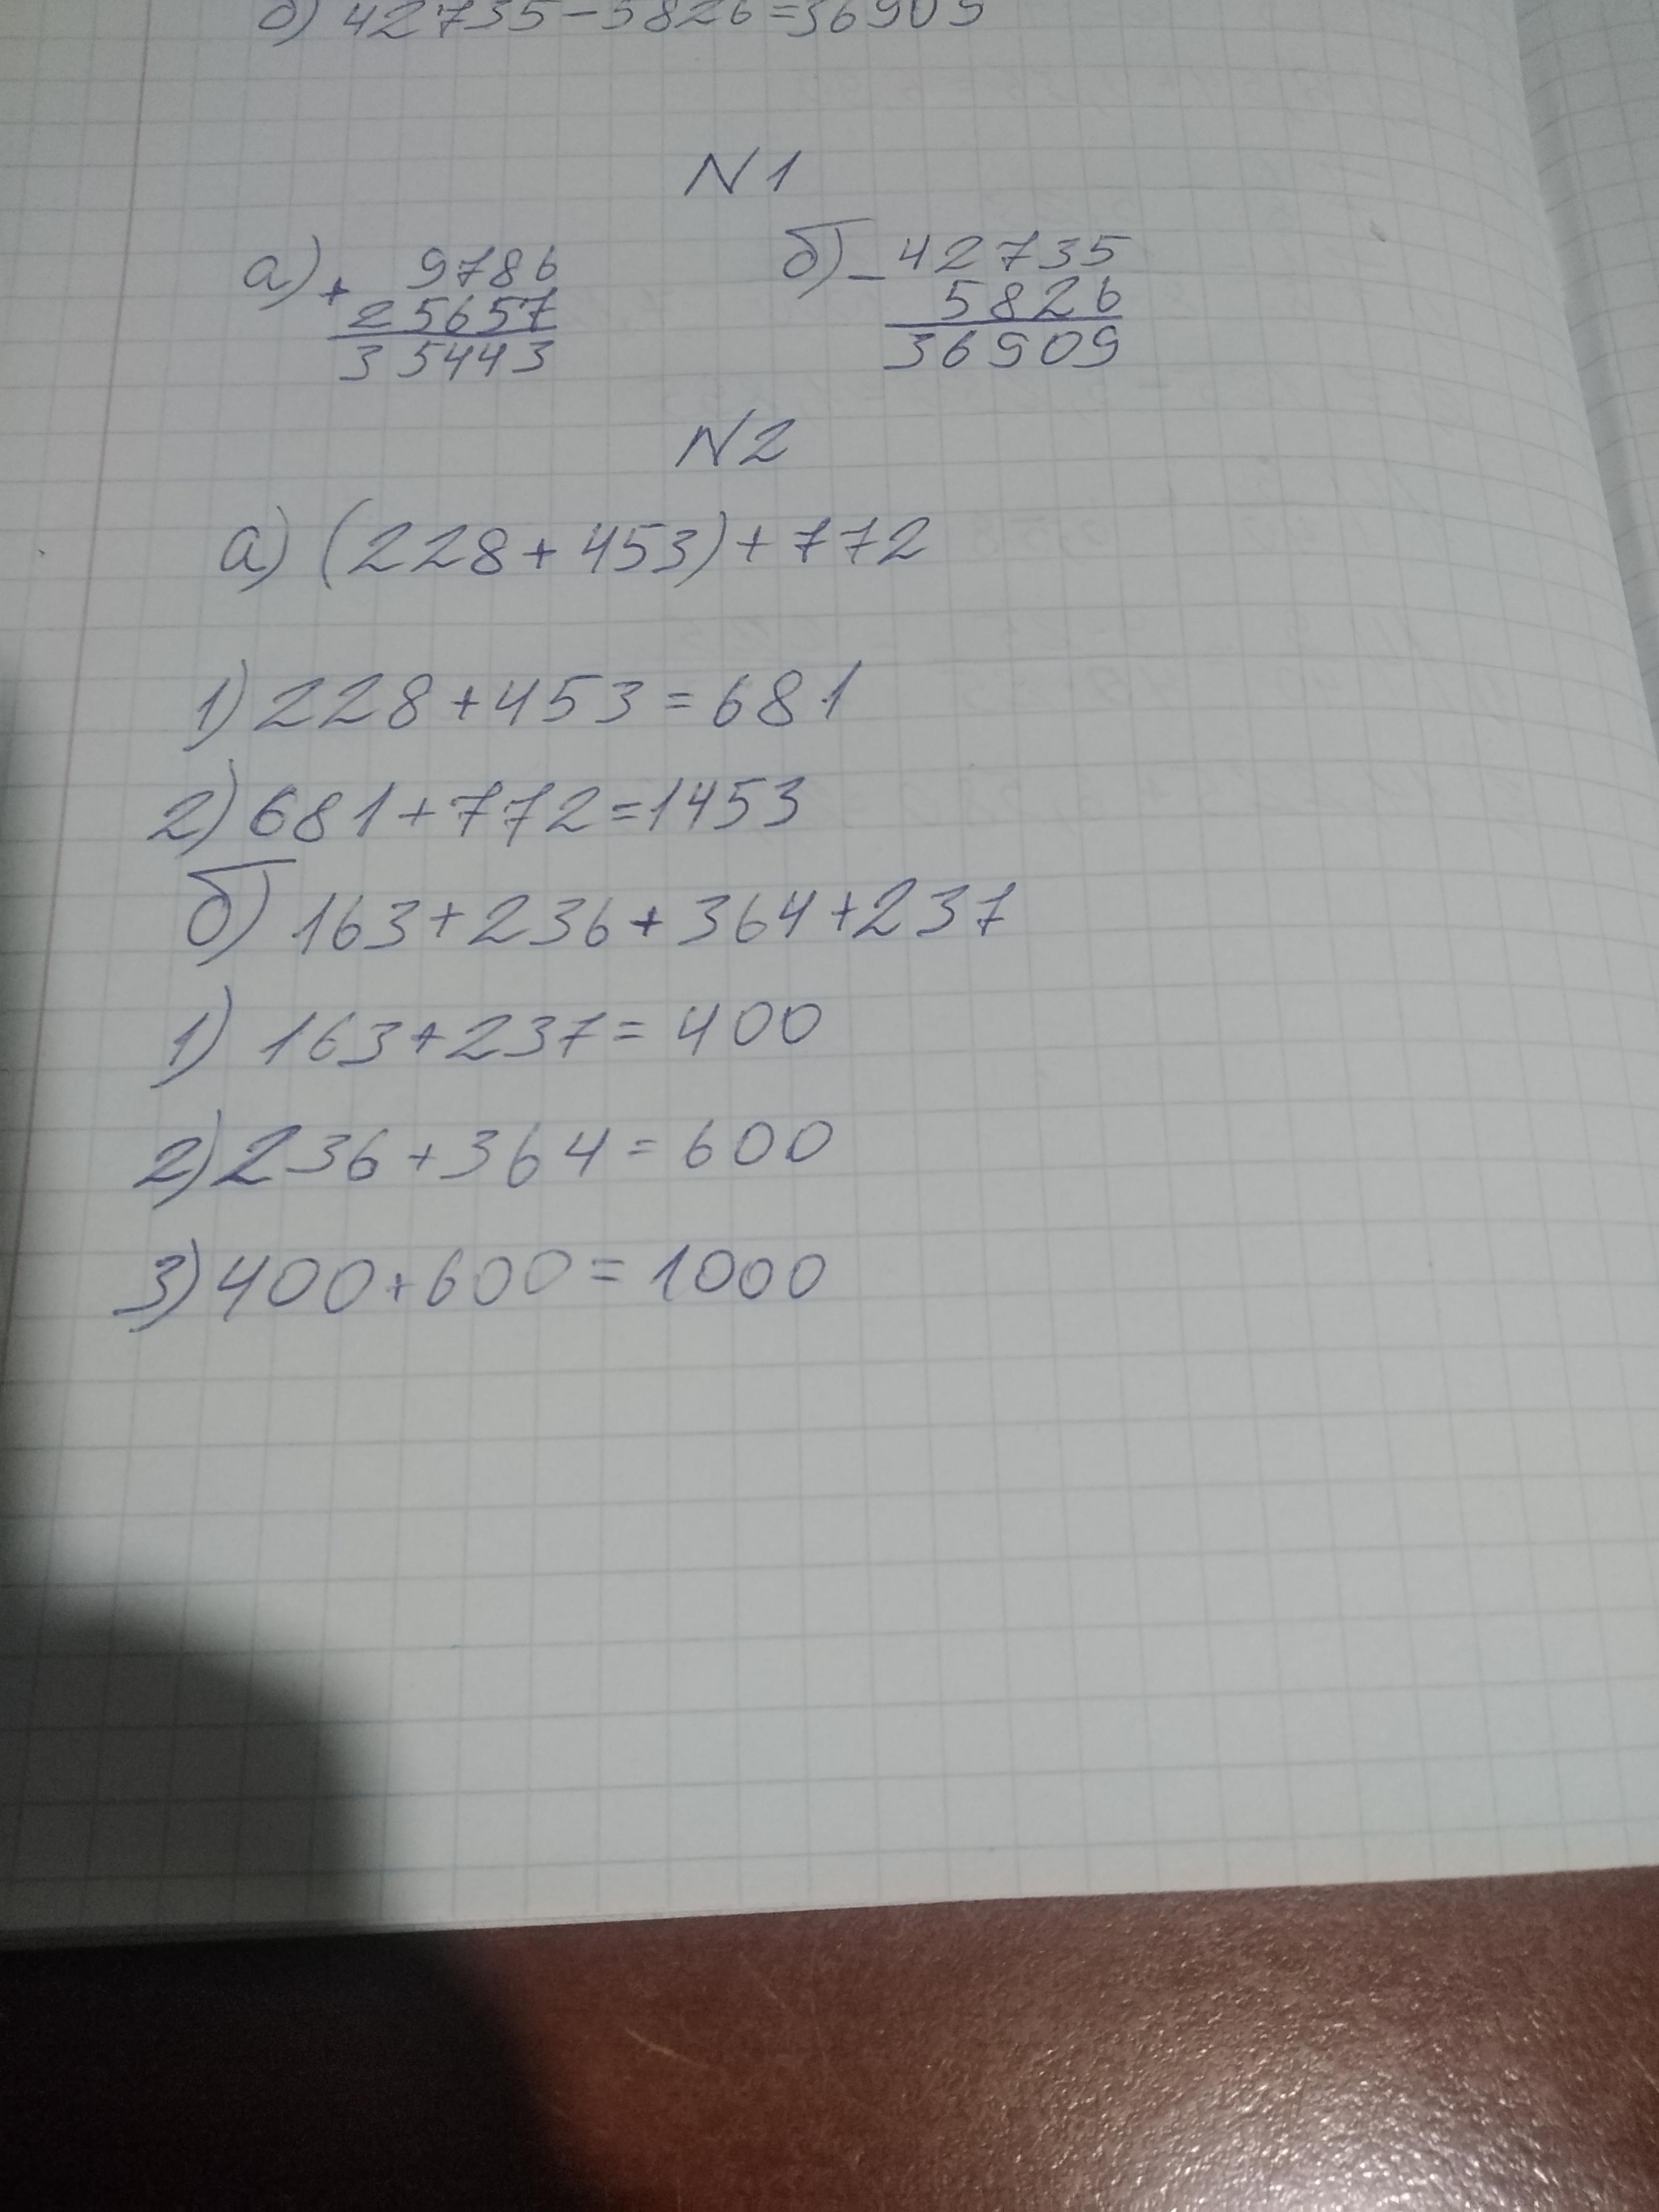 б) 42735-5826=36909
N1
а) + 9786 б) - 42735
25657 5826
35443 36909
N2
а) (228+453)+772
1) 228+453=681
2) 681+772=1453
б) 163+236+364+237
1) 163+237=400
2) 236+364=600
3) 400+600=1000